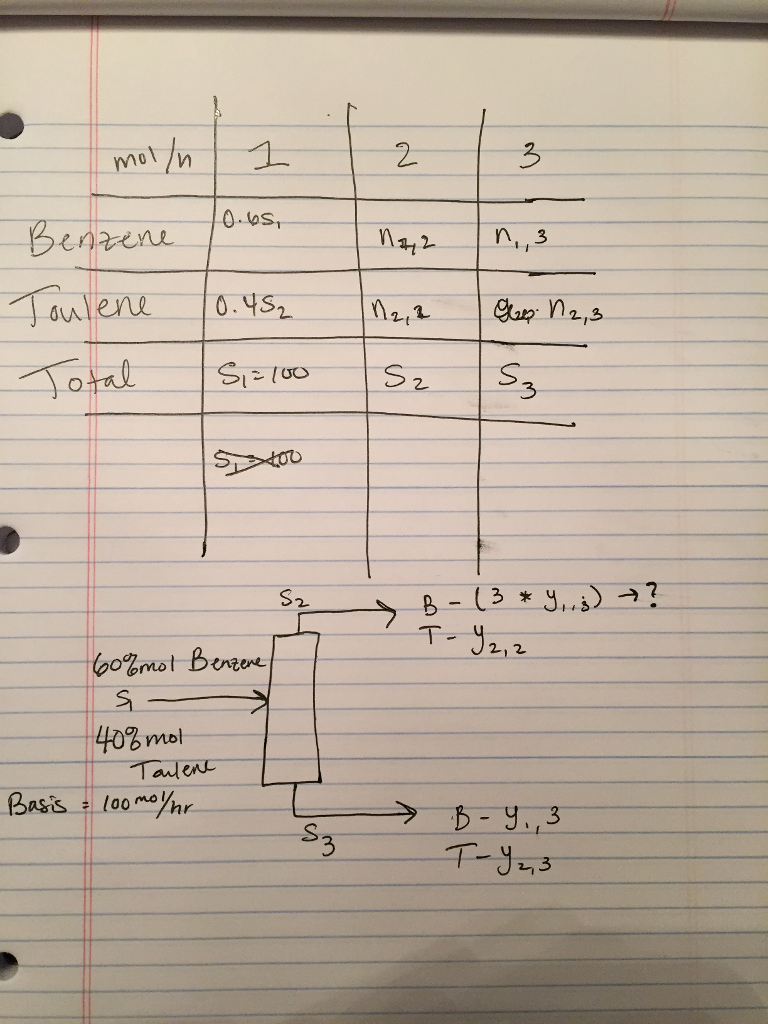 mol/n 1 2 3
Benzene 0.6S₁ n₁,₂ n₁,3
Toulene 0.4S₂ n₂,₂ n₂,₃
Total S₁=100 S₂ S₃
S₁=100
S₂ B - (3 * y₁,₃) → ?
T - y₂,₂
60%mol Benzene
S₁
40%mol
Toulene
Basis = 100 mol/hr
S₃ B - y₁,3
T - y₂,₃